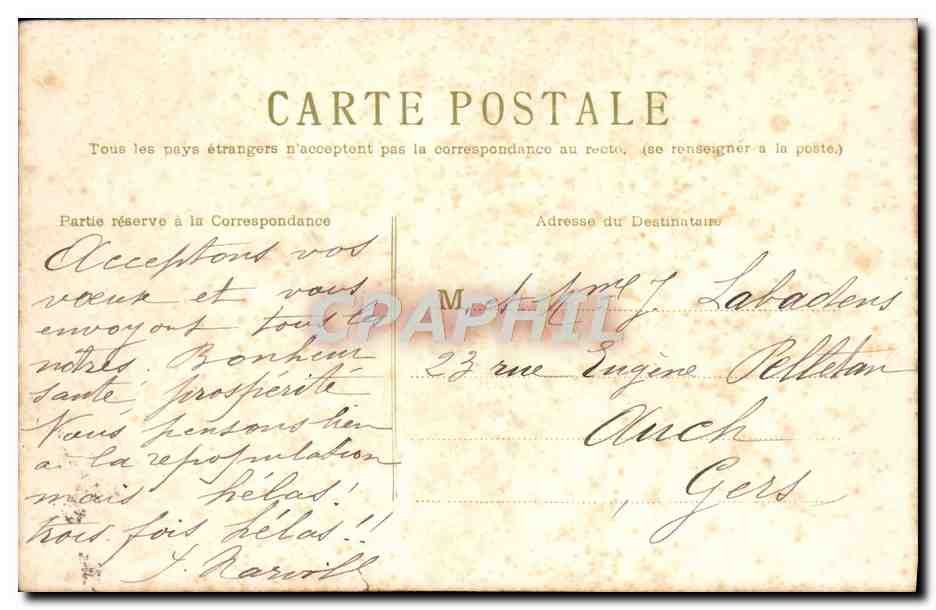 CARTE POSTALE
Tous les pays étrangers n'acceptent pas la correspondance au recto. (se renseigner a la poste.)
Partie réserve à la Correspondance
Acceptons vos
vœux et vous
envoyons tous les
nôtres. Bonheur
santé prospérité
Nous pensons bien
a la repopulation
mais hélas!
trois fois hélas!!
Adresse du Destinataire
M. et Mme J. Labadens
23 rue Eugène Pelletan
Auch
Gers
CPAPHIL